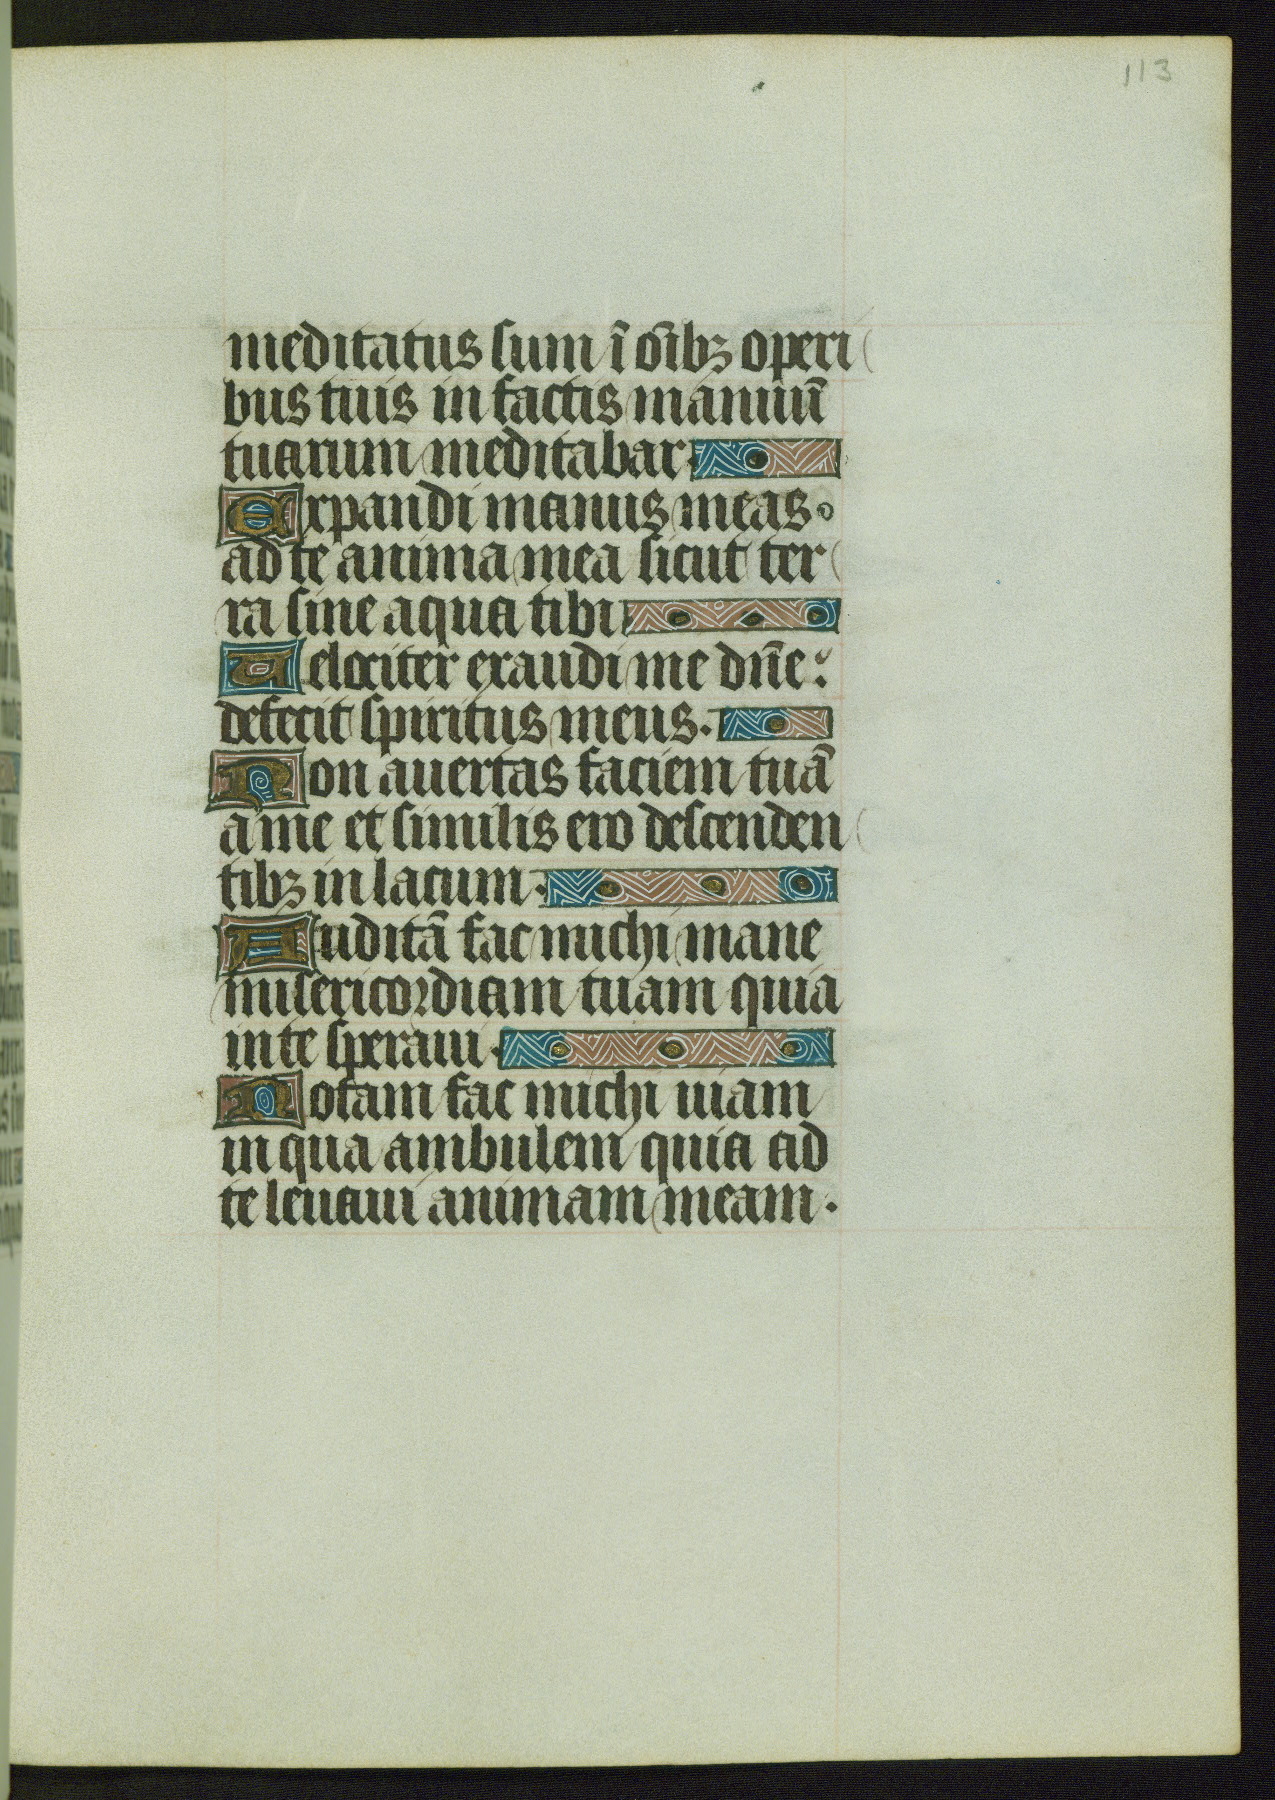 113
meditatus sum ī oı̄bꝫ operi
bus tuis in factis manuū
tuarum meditabar.
Expandi manus meas
ad te anima mea sicut ter
ra sine aqua tibi
Uelociter exaudi me dn̄e:
defecit spiritus meus.
Non auertas faciem tuā
a me et similis ero descenden
tibꝫ in lacum.
Auditā fac michi mane
misericordiam tuam quia
in te speraui.
Notam fac michi uiam
in qua ambulem quia ad
te leuaui animam meam.